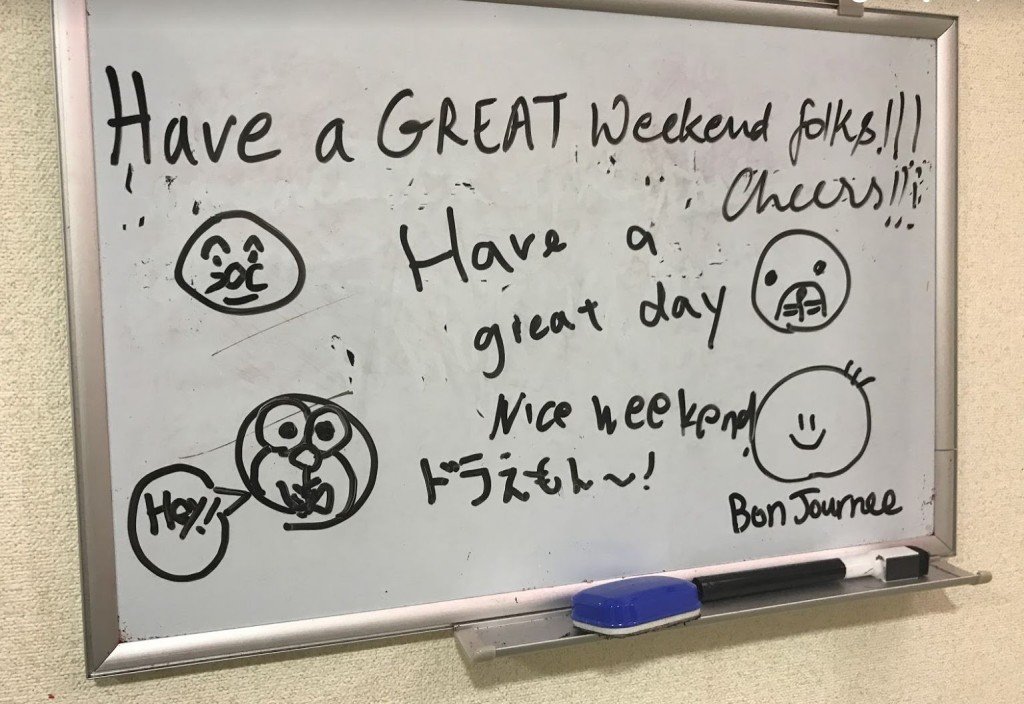 Have a GREAT Weekend folks!!!
Cheers!!!
Have a
great day
Nice weekend
ドラえもん〜!
Hey!!
Bon Journee